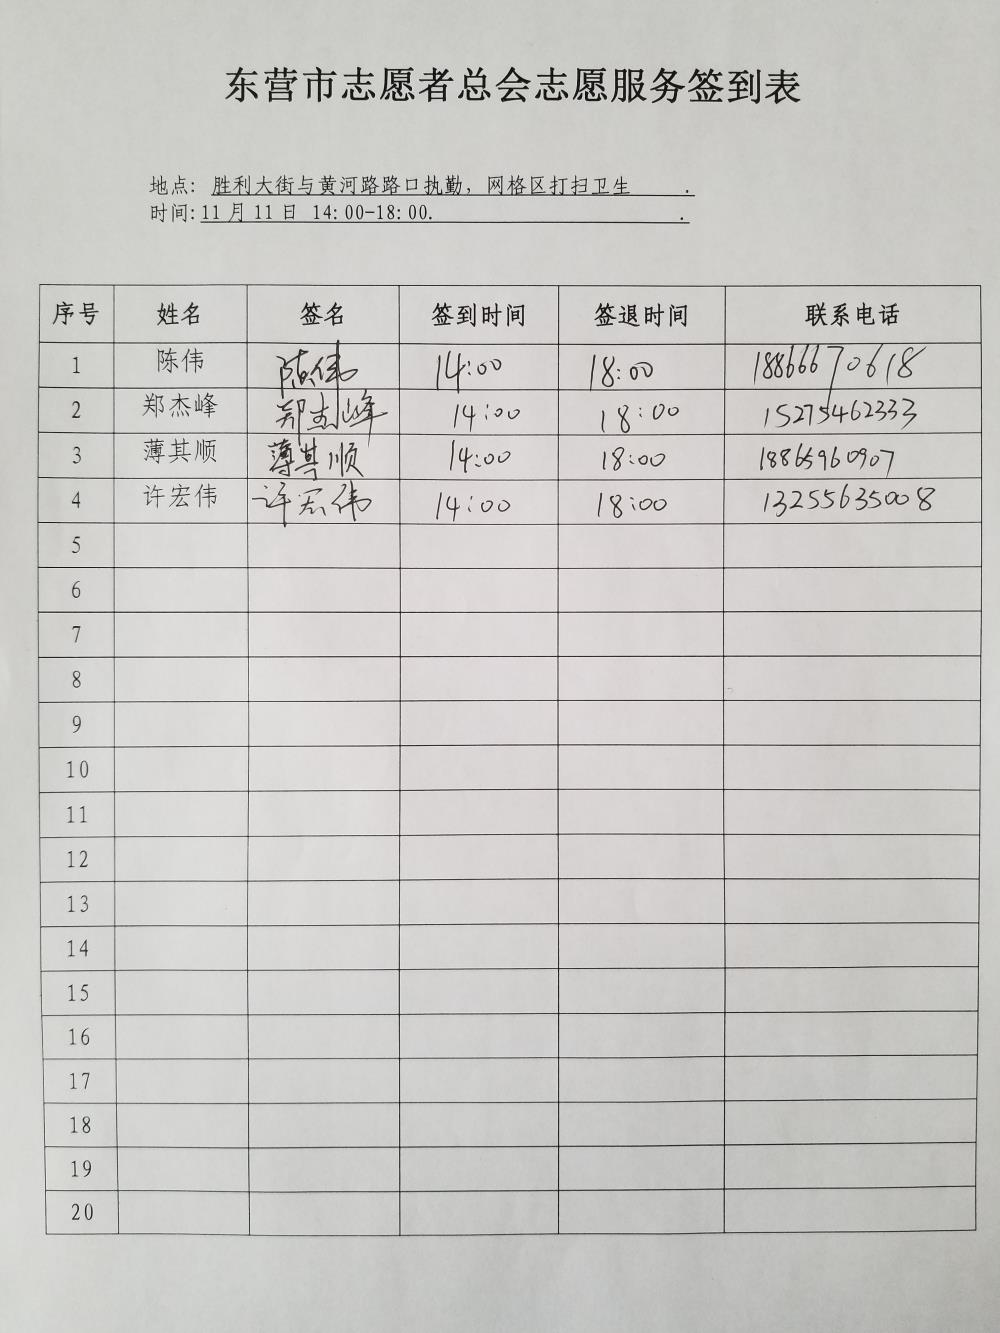 东营市志愿者总会志愿服务签到表
地点: 胜利大街与黄河路路口执勤，网格区打扫卫生 .
时间:11月11日 14:00-18:00. .
序号 姓名 签名 签到时间 签退时间 联系电话
1 陈伟 陈伟 14:00 18:00 18866670618
2 郑杰峰 郑杰峰 14:00 18:00 15275462333
3 薄其顺 薄其顺 14:00 18:00 18865960907
4 许宏伟 许宏伟 14:00 18:00 13255635008
5
6
7
8
9
10
11
12
13
14
15
16
17
18
19
20